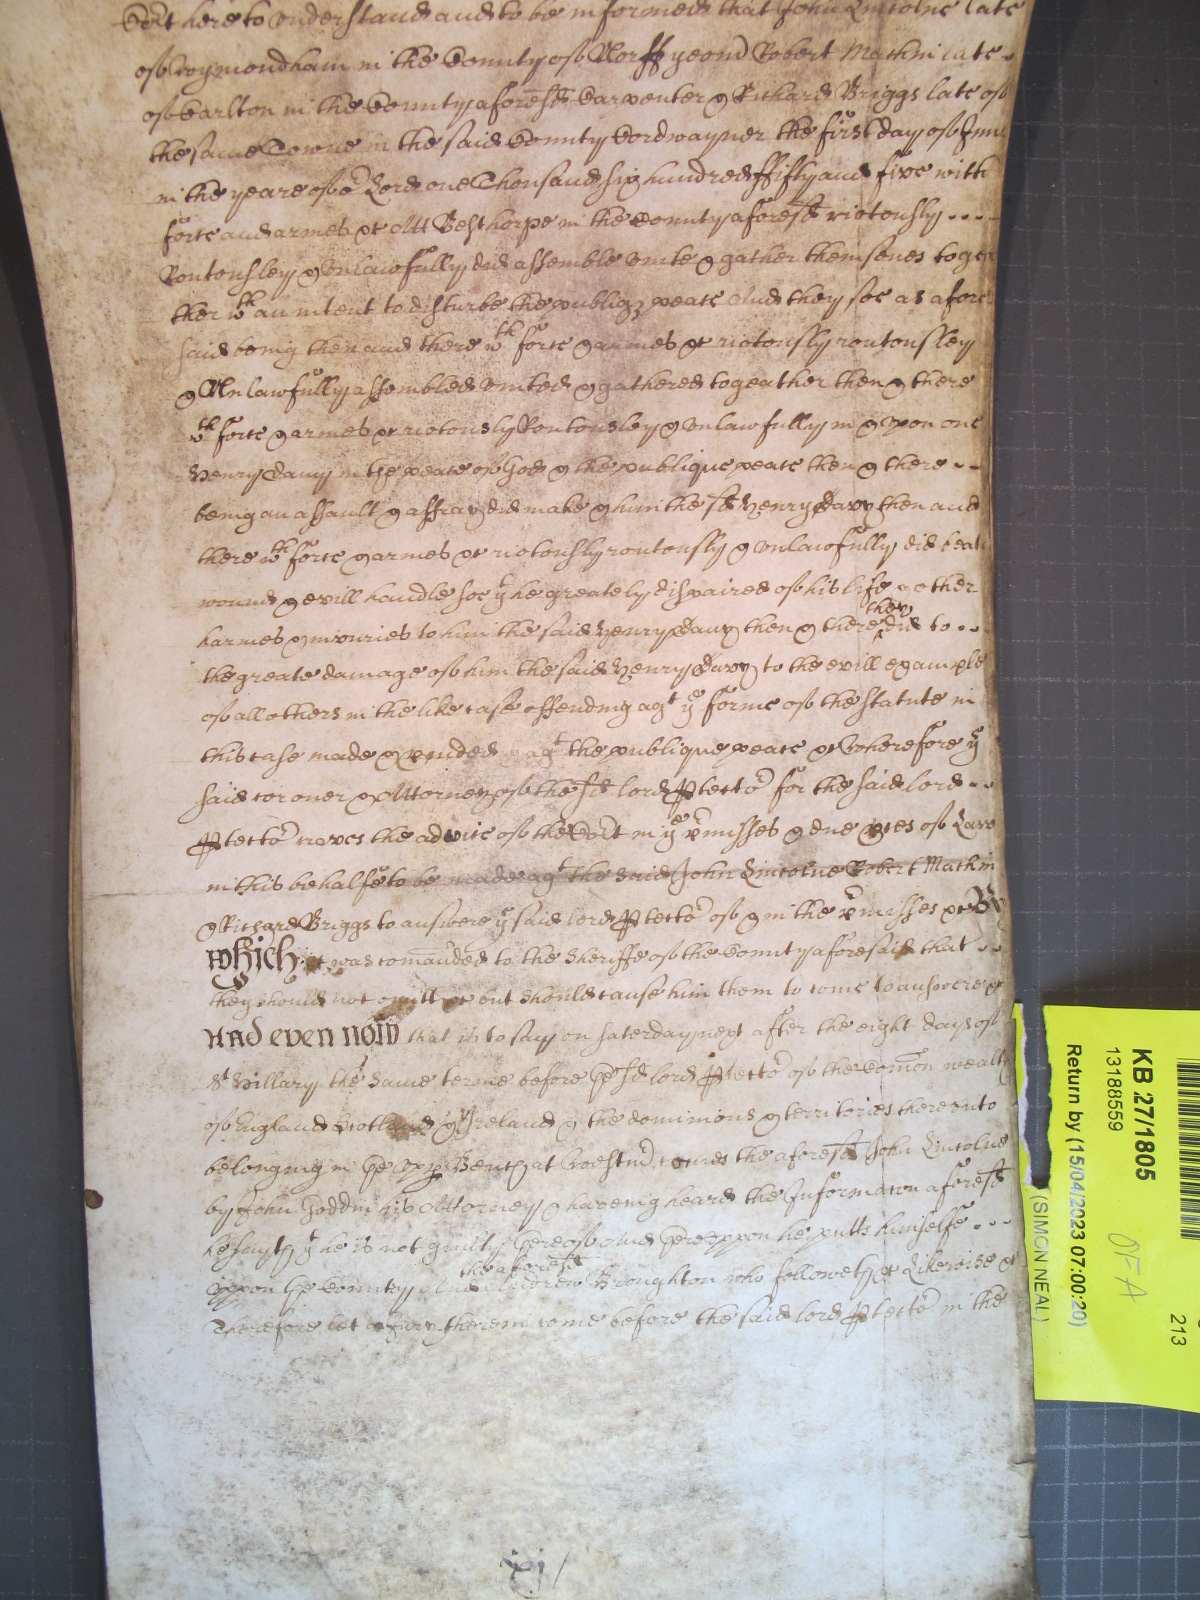 Co't here to understand and to be informed that John Lincolne late
of Wymondham in the County of Norff yeom Robert Mathin late
of Carlton in the County aforesd Carpenter & Richard Briggs late of
the same Towne in the said County Cordwayner the first day of June
in the yeare of o' Lord one Thousand six hundred ffifty and five with
force and armes &c Att Besthorpe in the County aforesd riotously
Routously & unlawfully did assemble unite & gather themselves togea
ther wth an intent to disturbe the publiq peace And they soe as afore
said being then and there wth force & armes &c riotously routously
& Unlawfully assembled united & gathered togeather then & there
wth force & armes &c riotously Routously & unlawfully in & upon one
Henry Davy in the peace of God & the publique peace then & there
being an assault & affray did make & him the sd Henry Davy then and
there wth force & armes &c riotously routously & unlawfully did beate
wound & evill handle soe yt he greately dispaired of his life & other
harmes & iniuries to him the said Henry Davy then & there they did to
the greate damage of him the said Henry Davy to the evill example
of all others in the like case offending agt ye forme of the statute in
this case made & pvided & agt the publique peace &c Wherefore ye
said coroner & Attorney of the sd lord Ptecto' for the said lord
Ptecto' craves the advice of the Co't in ye pmisses & due pces of Law
in this behalfe to be made agt the said John Lincolne Robert Mathin
& Richard Briggs to answere ye said lord Ptecto' of & in the pmisses &c By
which it was comanded to the Sheriffe of the County aforesaid that
they should not omitt &c but should cause him them to come to answere &c
And even now that is to say on Saterday next after the eight dayes of
St Hillary the same terme before ye sd lord Ptecto' of the Comon wealth
of England Scotland & Ireland & the dominions & territories thereunto
belonging in ye upp Bench at Westmr comes the aforesd John Lincolne
by John Goddin his Attorney & haveing heard the Informacon aforesd
he sayth yt he is not guilty thereof And thereuppon he putts himselfe
uppon the Country And the aforesd Andrew Broughton who followeth &c Likewise &c
Therefore let a Jury therein come before the said lord Ptecto' in the
xj
KB 27/1805
13188559
Return by (15/04/2023 07:00:20)
(SIMON NEAL)
OFA
213